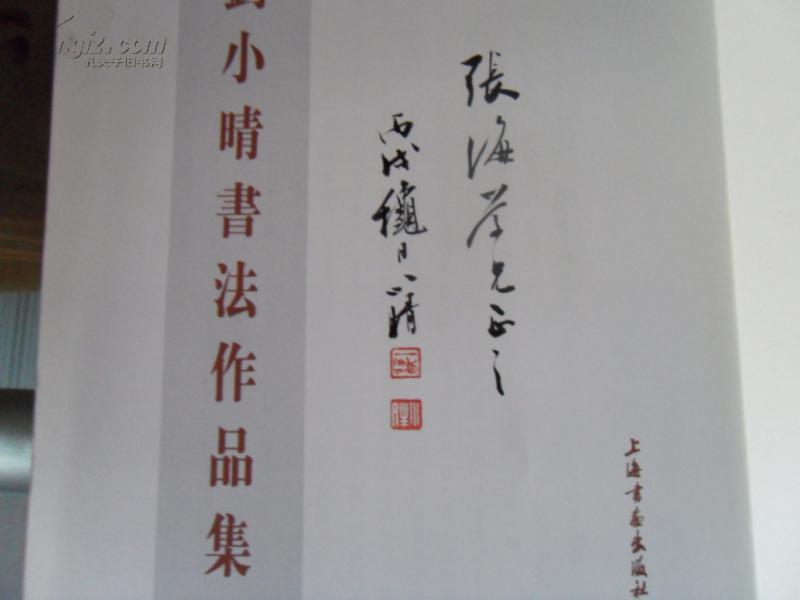 張海学兄正之
丙戌龝日小晴
小晴書法作品集
上海書畫出版社
孔夫子旧书网